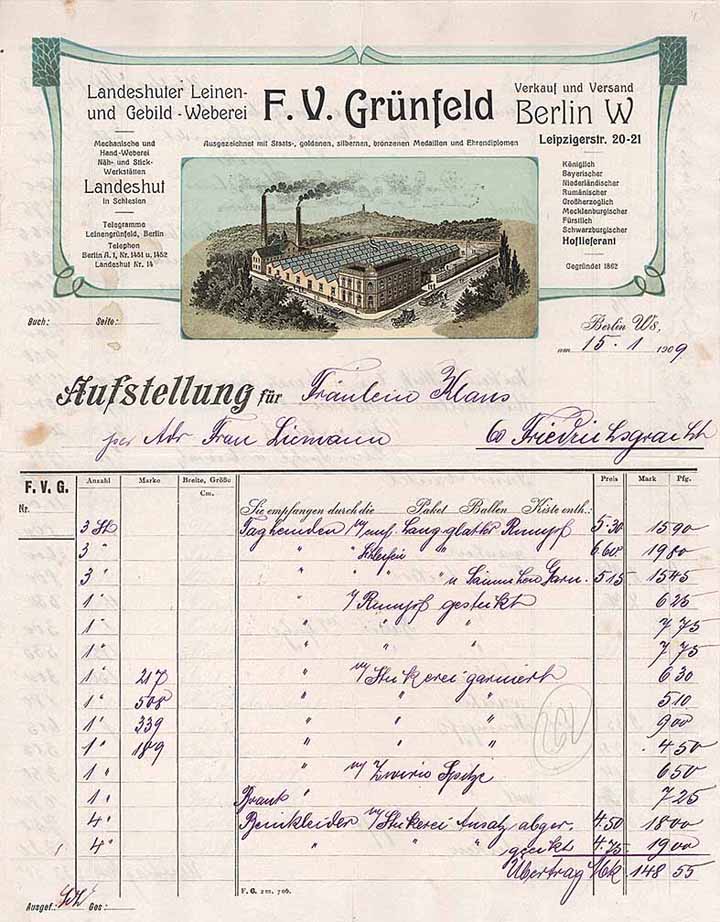 Landeshuter Leinen-
und Gebild-Weberei
F. V. Grünfeld
Verkauf und Versand
Berlin W
Leipzigerstr. 20-21
Ausgezeichnet mit Staats-, goldenen, silbernen, bronzenen Medaillen und Ehrendiplomen
Mechanische und
Hand-Weberei
Näh- und Stick-
Werkstätten
Landeshut
in Schlesien
Telegramme
Leinengrünfeld, Berlin
Telephon
Berlin A. 1, Nr. 1451 u. 1452
Landeshut Nr. 14
Königlich
Bayerischer
Niederländischer
Rumänischer
Großherzoglich
Mecklenburgischer
Fürstlich
Schwarzburgischer
Hoflieferant
Gegründet 1862
Buch: Seite:
Berlin W8,
am 15. 1 1909
Aufstellung für Fräulein Klaus
per Adr Frau Liemann Friedrichsgracht
F. V. G. Anzahl Marke Breite, Größe Cm. Preis Mark Pfg.
Nr. Sie empfangen durch die Paket Ballen Kiste enth.:
3 St Taghemden lang glatter Rumpf 5.30 15 90
3 " " " Schleifen " 6.60 19 80
3 " " " u Säumchen Garn. 5 15 15 45
1 " " Rumpf gestickt 6 25
1 " " " " 7 75
1 " " " " 7 75
1 " 217 " Stickerei garniert 6 30
1 " 508 " " " 5 10
1 " 339 " " " 9 00
1 " 189 " " " 4 50
1 " " Spitze 6 50
1 " Braut " 7 25
4 " Beinkleider Stickerei Ansatz abger. 4.50 18 00
4 " " " " 4.75 19 00
Übertrag Mk 148 55
F. G. 2m. 706.
Ausgef.: Ges: